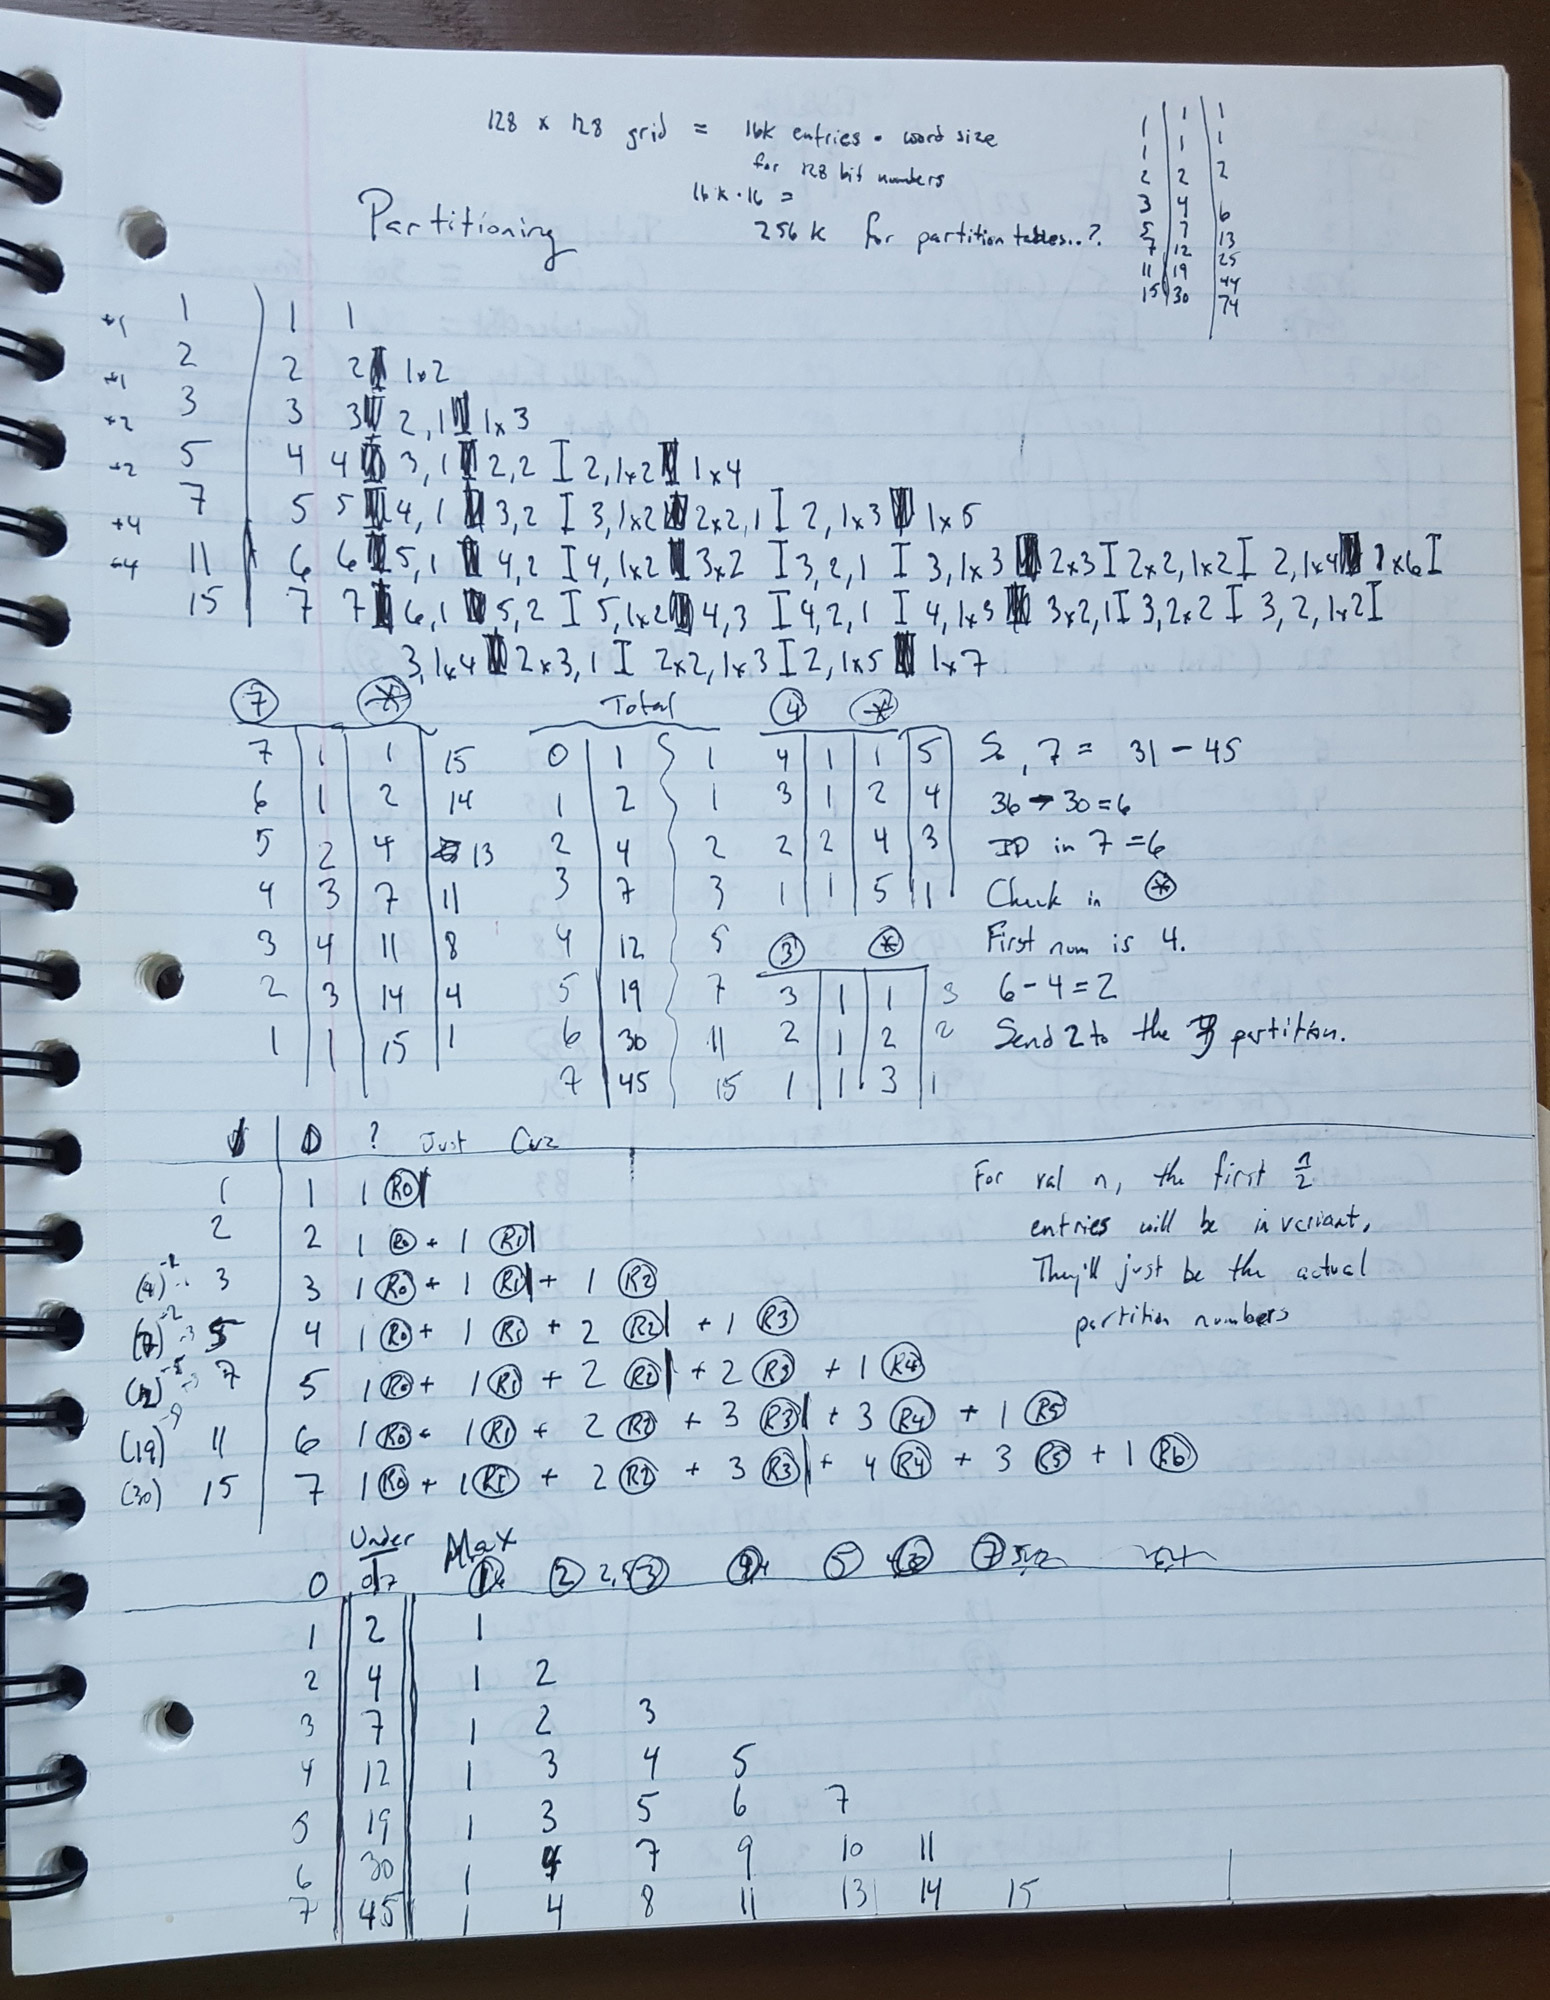 128 x 128 grid = 16k entries • word size
for 128 bit numbers
16k • 16 =
256k for partition tables..?
Partitioning
1 | 1 | 1
1 | 1 | 1
2 | 2 | 2
3 | 4 | 6
5 | 7 | 13
7 | 12 | 25
11 | 19 | 44
15 | 30 | 74
+1 1 | 1 1
+1 2 | 2 2 I 1x2
+2 3 | 3 3 I 2,1 I 1x3
+2 5 | 4 4 I 3,1 I 2,2 I 2,1x2 I 1x4
+4 7 | 5 5 I 4,1 I 3,2 I 3,1x2 I 2x2,1 I 2,1x3 I 1x5
+4 11 | 6 6 I 5,1 I 4,2 I 4,1x2 I 3x2 I 3,2,1 I 3,1x3 I 2x3 I 2x2,1x2 I 2,1x4 I 1x6 I
15 | 7 7 I 6,1 I 5,2 I 5,1x2 I 4,3 I 4,2,1 I 4,1x3 I 3x2,1 I 3,2x2 I 3,2,1x2 I
3,1x4 I 2x3,1 I 2x2,1x3 I 2,1x5 I 1x7
7 *
7 | 1 | 1 | 15
6 | 1 | 2 | 14
5 | 2 | 4 | 13
4 | 3 | 7 | 11
3 | 4 | 11 | 8
2 | 3 | 14 | 4
1 | 1 | 15 | 1
Total
0 | 1 | 1
1 | 2 | 1
2 | 4 | 2
3 | 7 | 3
4 | 12 | 5
5 | 19 | 7
6 | 30 | 11
7 | 45 | 15
4 *
4 | 1 | 1 | 5
3 | 1 | 2 | 4
2 | 2 | 4 | 3
1 | 1 | 5 | 1
3 *
3 | 1 | 1 | 3
2 | 1 | 2 | 2
1 | 1 | 3 | 1
So, 7 = 31 - 45
36 - 30 = 6
ID in 7 = 6
Check in *
First num is 4.
6 - 4 = 2
Send 2 to the 3 partition.
? Just Cuz
1 | 1 1 R0|
2 | 2 1 R0 + 1 R1|
(4) 3 | 3 1 R0 + 1 R1| + 1 R2
(7) 5 | 4 1 R0 + 1 R1 + 2 R2| + 1 R3
(12) 7 | 5 1 R0 + 1 R1 + 2 R2| + 2 R3 + 1 R4
(19) 11 | 6 1 R0 + 1 R1 + 2 R2 + 3 R3| + 3 R4 + 1 R5
(30) 15 | 7 1 R0 + 1 R1 + 2 R2 + 3 R3| + 4 R4 + 3 R5 + 1 R6
For val n, the first n/2
entries will be invariant.
They'll just be the actual
partition numbers
Under Max
0 1 2 3 4 5 6 7
1 | 2 | 1
2 | 4 | 1 2
3 | 7 | 1 2 3
4 | 12 | 1 3 4 5
5 | 19 | 1 3 5 6 7
6 | 30 | 1 4 7 9 10 11
7 | 45 | 1 4 8 11 13 14 15